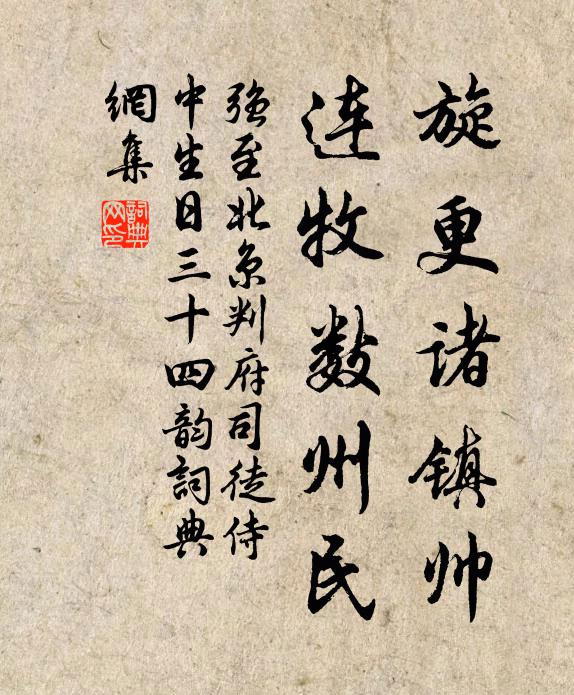 旋更诸镇帅
连牧数州民
强至北京判府司徒侍
中生日三十四韵詞典
網集
詞典
网印